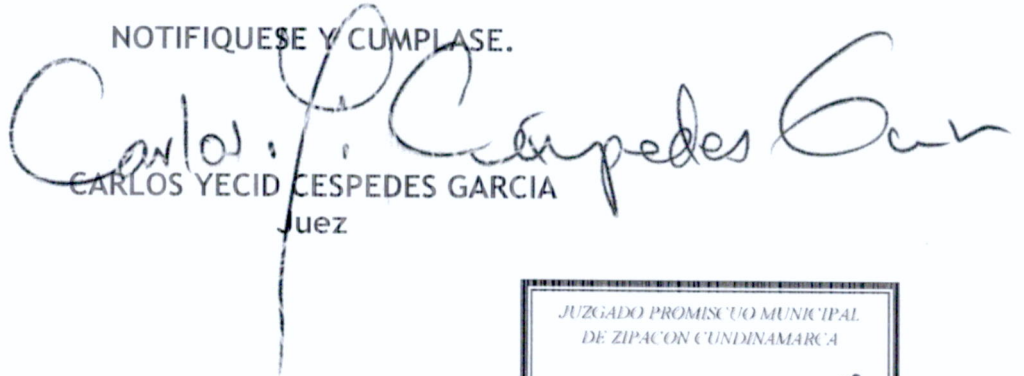 NOTIFIQUESE Y CUMPLASE.
Carlos Y. Céspedes
CARLOS YECID CESPEDES GARCIA
Juez
JUZGADO PROMISCUO MUNICIPAL
DE ZIPACON CUNDINAMARCA